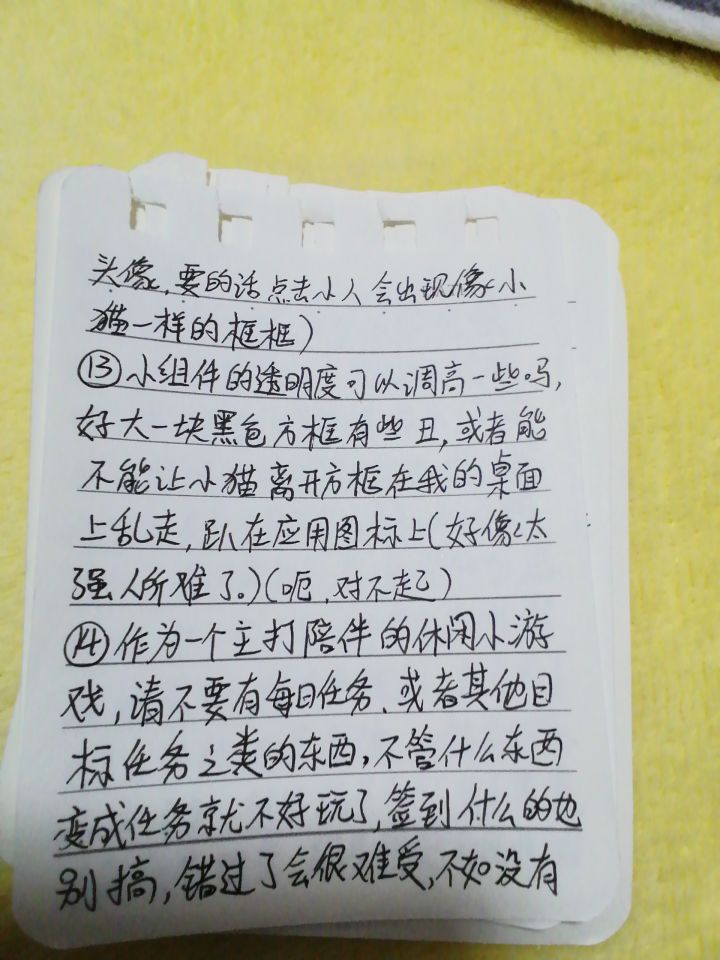 头像，要的话点击小人会出现像小
猫一样的框框）
⑬小组件的透明度可以调高一些吗，
好大一块黑色方框有些丑，或者能
不能让小猫离开方框在我的桌面
上乱走，趴在应用图标上（好像太
强人所难了。）（呃，对不起）
⑭作为一个主打陪伴的休闲小游
戏，请不要有每日任务、或者其他目
标任务之类的东西，不管什么东西
变成任务就不好玩了，签到什么的也
别搞，错过了会很难受，不如没有